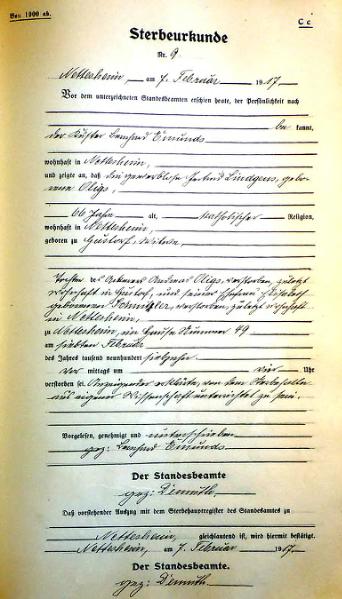 Von 1900 ab.
C c
Sterbeurkunde
Nr. 9
Nettersheim, am 7. Februar 1917
Vor dem unterzeichneten Standesbeamten erschien heute, der Persönlichkeit nach
be kannt,
der Küster Bernhard Esmunds
wohnhaft in Nettersheim,
und zeigte an, daß die gewerblose Gertrud Lindgens, gebo-
rene Oligs,
66 Jahre alt, katholischer Religion,
wohnhaft in Nettersheim,
geboren zu Gustorf, Witwe,
Tochter des Ackerers Andreas Oligs, verstorben, zuletzt
wohnhaft in Gustorf, und seiner Ehefrau Elisabeth
geborenen verstorben, zuletzt wohnhaft
in Nettersheim,
zu Nettersheim, im Hause Nummer 49
am siebten Februar
des Jahres tausend neunhundert siebzehn
vor mittags um vier Uhr
verstorben sei. Anzeigender erklärte, von dem Sterbefalle
aus eigener Wissenschaft unterrichtet zu sein.
Vorgelesen, genehmigt und unterschrieben
gez: Bernhard Esmunds
Der Standesbeamte
gez: Diemuth.
Daß vorstehender Auszug mit dem Sterbehauptregister des Standesamtes zu
Nettersheim, gleichlautend ist, wird hiermit bestätigt.
Nettersheim, am 7. Februar 1917.
Der Standesbeamte.
gez: Diemuth.